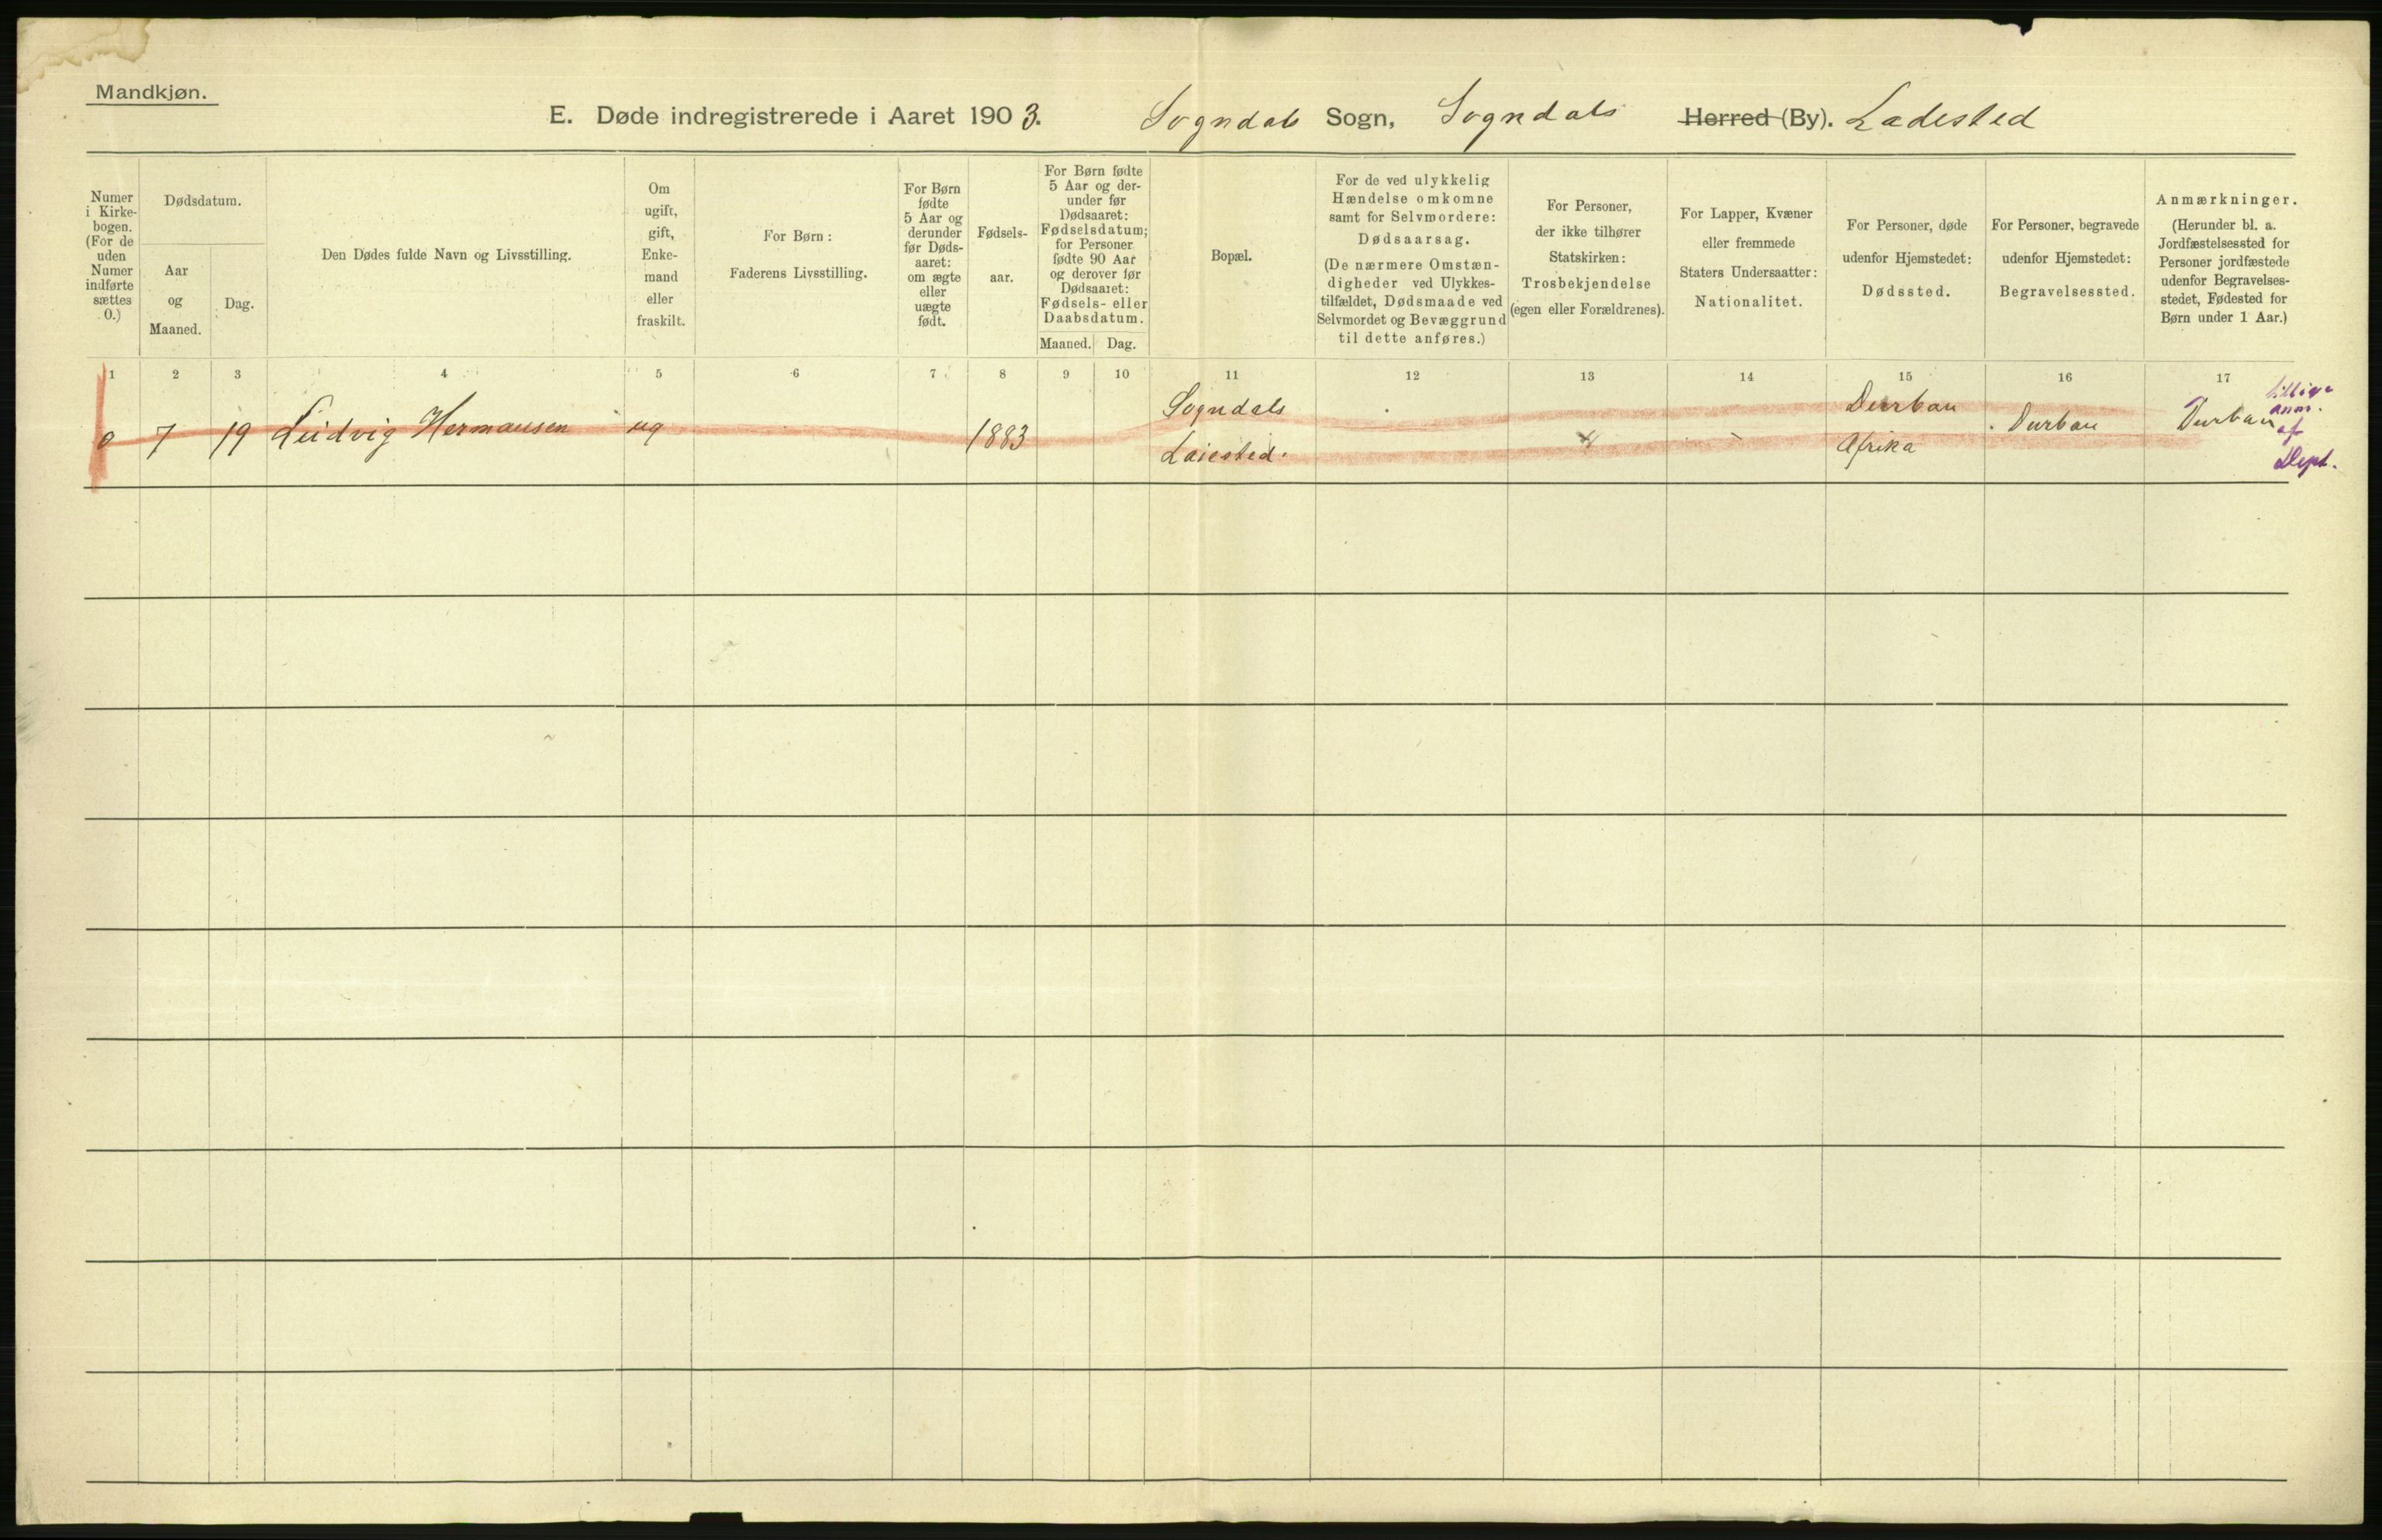 Mandkjøn.
E. Døde indregistrerede i Aaret 1903. Sogndals Sogn, Sogndals Herred (By). Ladested
Numer
i Kirke-
bogen.
(For de
uden
Numer
indførte
sættes
0.)
Dødsdatum.
Aar
og
Maaned.
Dag.
Den Dødes fulde Navn og Livsstilling.
Om
ugift,
gift,
Enke-
mand
eller
fraskilt.
For Børn:
Faderens Livsstilling.
For Børn
fødte
5 Aar og
derunder
før Døds-
aaret:
om ægte
eller
uægte
født.
Fødsels-
aar.
For Børn fødte
5 Aar og der-
under før
Dødsaaret:
Fødselsdatum;
for Personer
fødte 90 Aar
og derover før
Dødsaaret:
Fødsels- eller
Daabsdatum.
Maaned. Dag.
Bopæl.
For de ved ulykkelig
Hændelse omkomne
samt for Selvmordere:
Dødsaarsag.
(De nærmere Omstæn-
digheder ved Ulykkes-
tilfældet, Dødsmaade ved
Selvmordet og Bevæggrund
til dette anføres.)
For Personer,
der ikke tilhører
Statskirken:
Trosbekjendelse
(egen eller Forældrenes).
For Lapper, Kvæner
eller fremmede
Staters Undersaatter:
Nationalitet.
For Personer, døde
udenfor Hjemstedet:
Dødssted.
For Personer, begravede
udenfor Hjemstedet:
Begravelsessted.
Anmærkninger.
(Herunder bl. a.
Jordfæstelsessted for
Personer jordfæstede
udenfor Begravelses-
stedet, Fødested for
Børn under 1 Aar.)
1 2 3 4 5 6 7 8 9 10 11 12 13 14 15 16 17
0 7 19 Ludvig Hermansen ug 1883
Sogndals
Ladested.
Durban
Afrika
Durban
Durban
anm.
af
Dept.